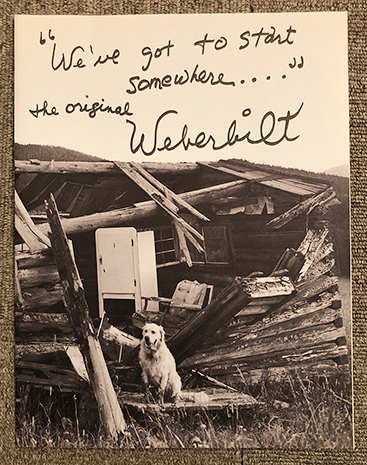 "We've got to start
somewhere...."
the original
Weberbilt